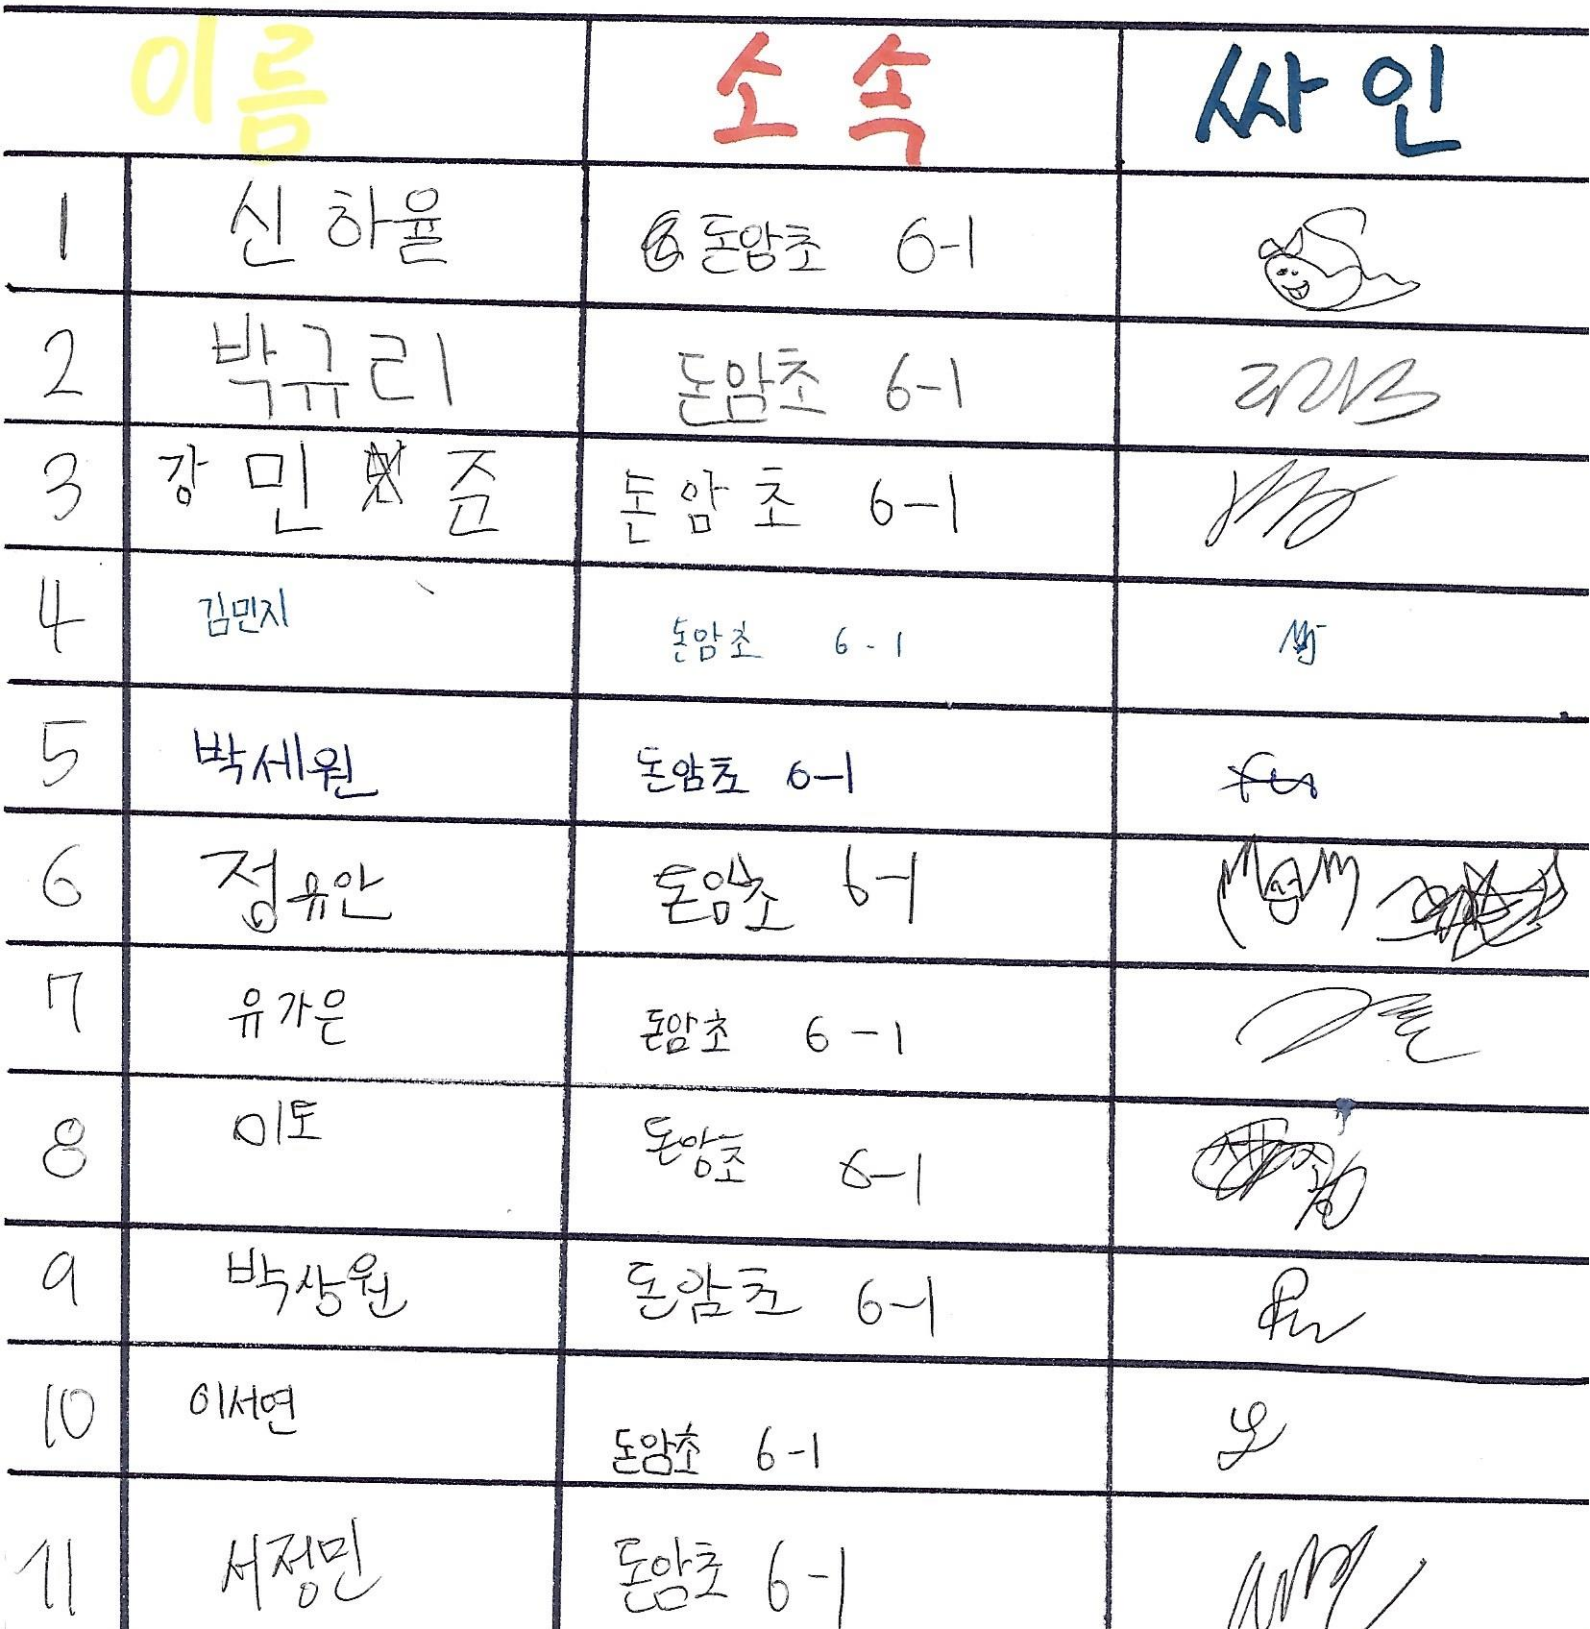 이름 소속 싸인
1 신하율 돈암초 6-1
2 박규리 돈암초 6-1
3 강민준 돈암초 6-1
4 김민지 돈암초 6-1
5 박세원 돈암초 6-1
6 정유안 돈암초 6-1
7 유가은 돈암초 6-1
8 이토 돈암초 6-1
9 박상원 돈암초 6-1
10 이서연 돈암초 6-1
11 서정민 돈암초 6-1